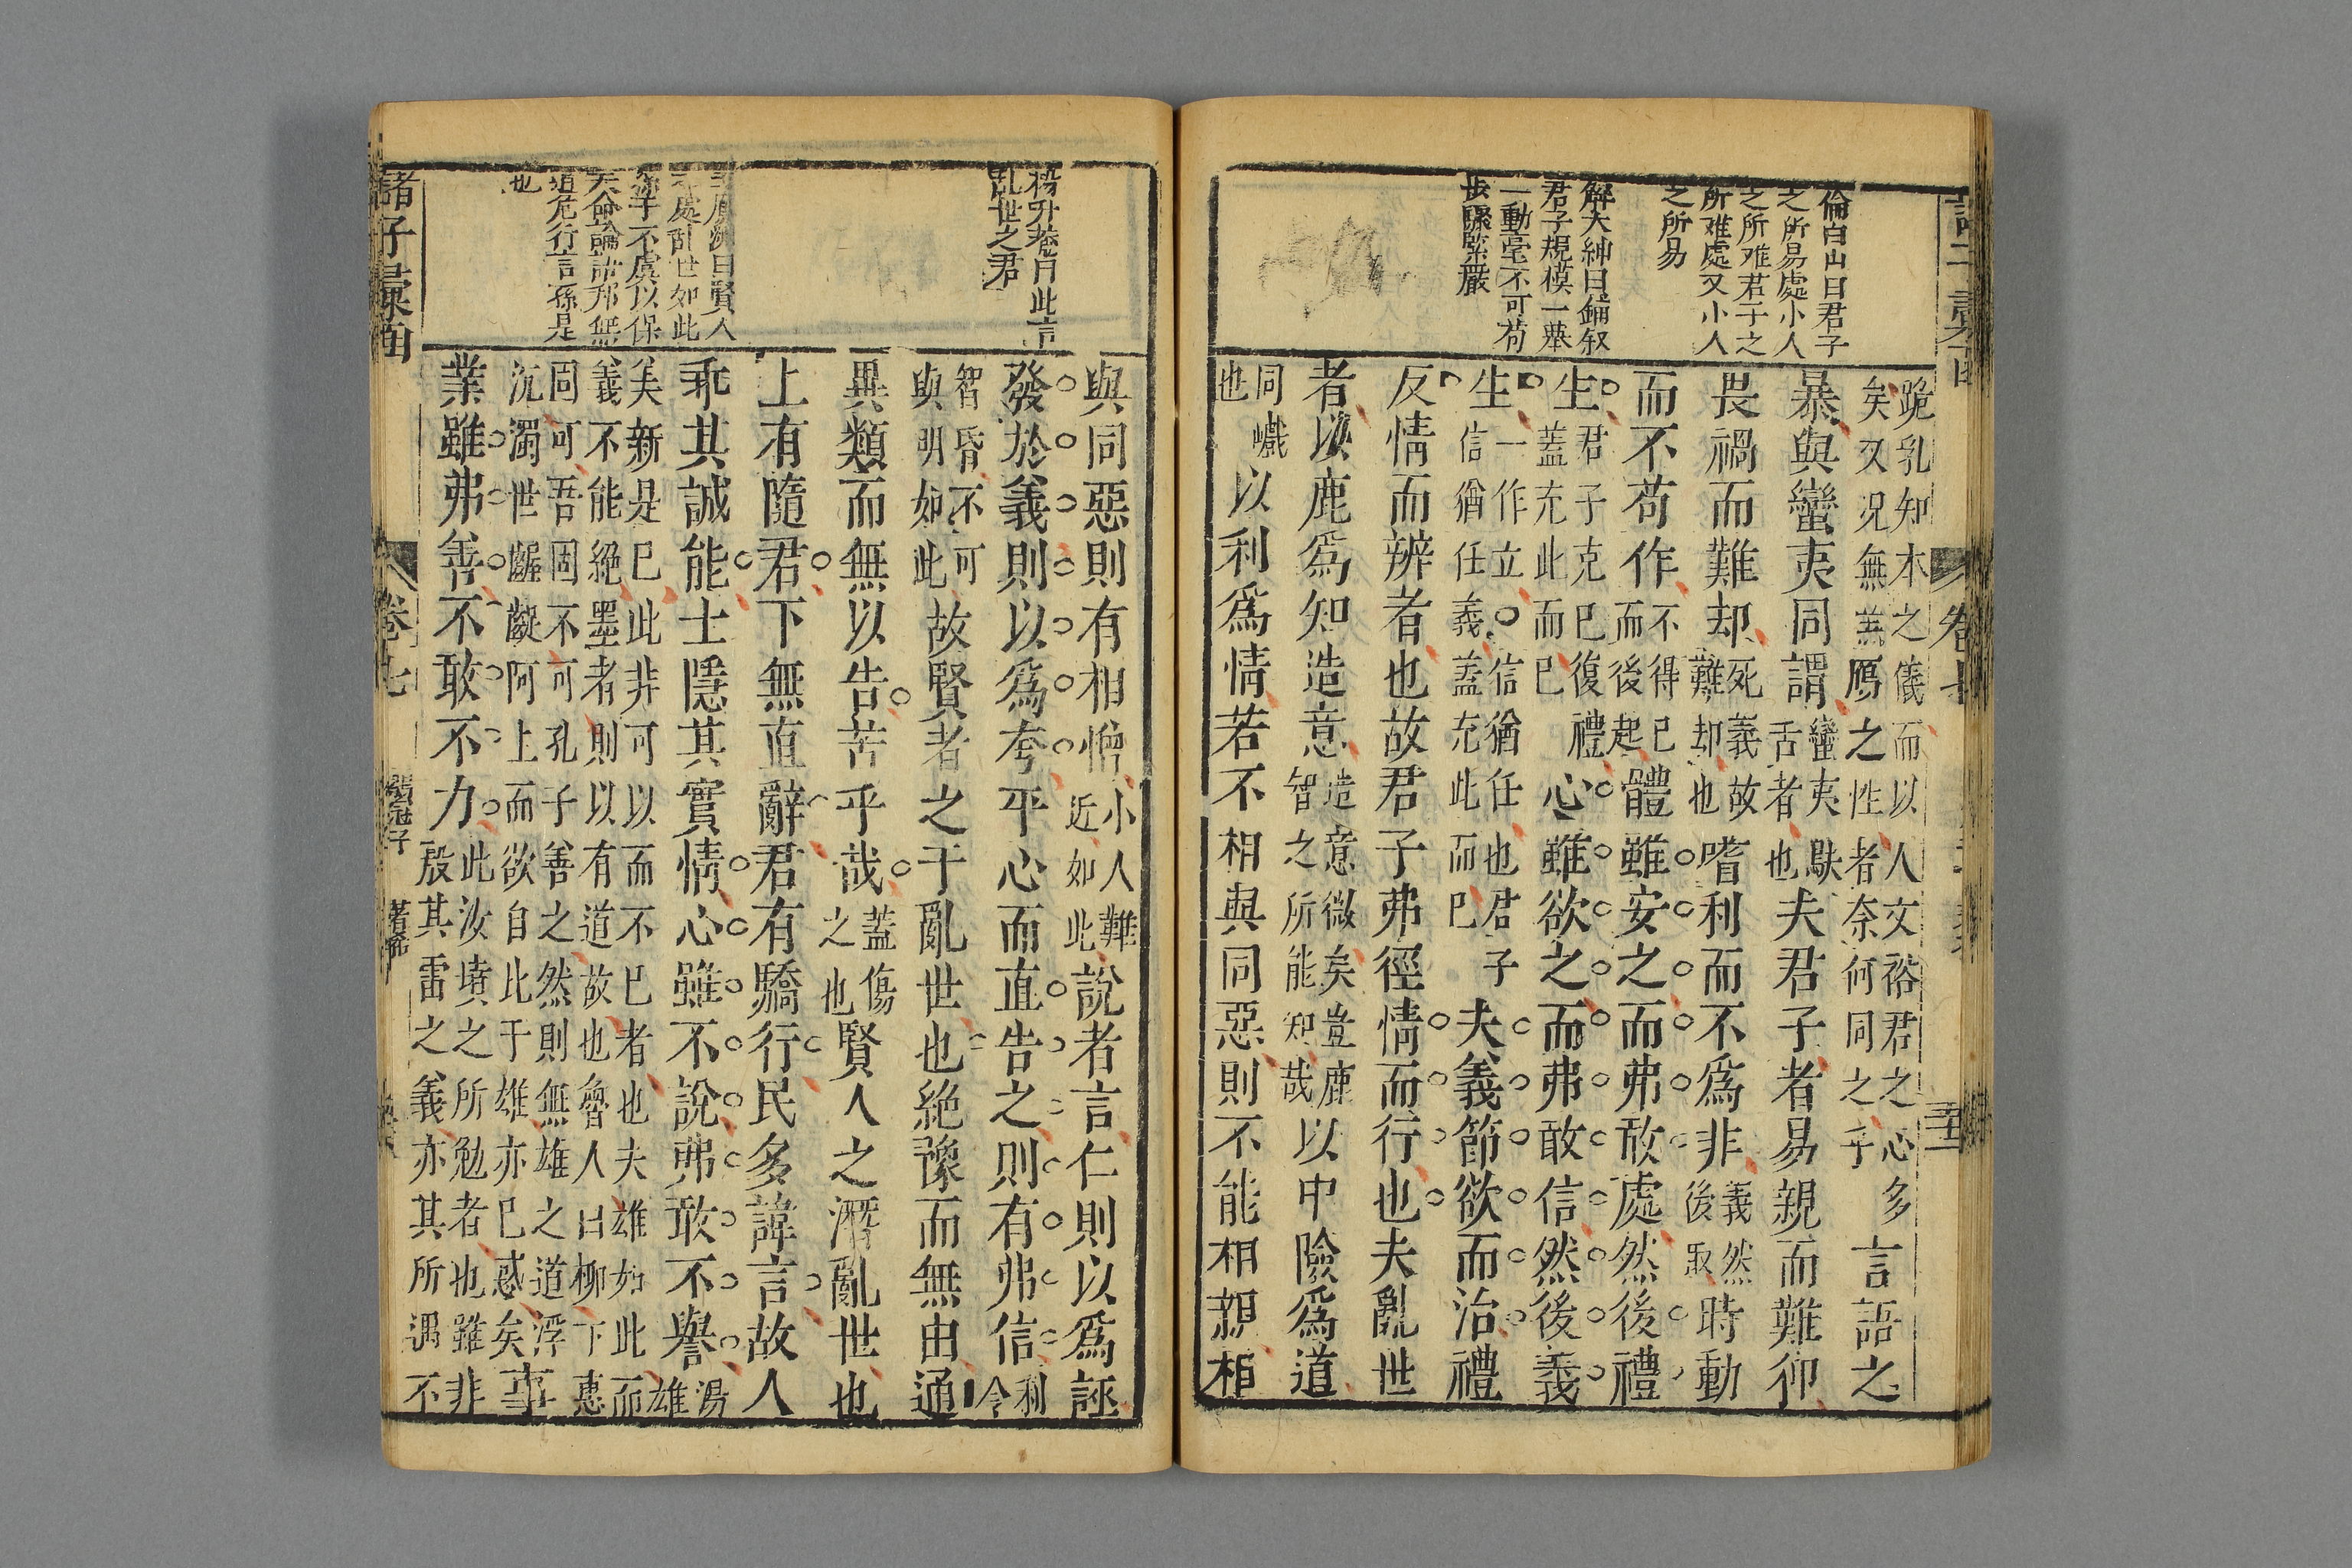 倫白山曰君子
之所易處小人
之所难君子之
所难處又小人
之所易
解大紳曰鋪叙
君子規模一舉
一動毫不可苟
步驟緊嚴
跪乳知本之儀而以人文裕君之心多
矣又況無羔鴈之性者奈何同之乎言語之
暴與蠻夷同謂蠻夷駃
舌者也夫君子者易親而難仰
畏禍而難却死義故
難却也嗜利而不爲非義然
後取時動
而不苟作不得已
而後起體雖安之而弗敢處然後禮
生君子克己復禮
蓋充此而已心雖欲之而弗敢信然後義
生一作立○信猶任也君子
信猶任義蓋充此而已夫義節欲而治禮
反情而辨者也故君子弗徑情而行也夫亂世
者以鹿爲知造意造意微矣豈鹿
智之所能知哉以中險爲道
同巇
也以利爲情若不相與同惡則不能相親相
楊升菴曰此言
亂世之君
曰賢人
處亂世如此
子不虞以保
天命論語邦無
道危行言孫是
也
與同惡則有相憎小人難
近如此說者言仁則以爲誣
發於義則以爲夸平心而直告之則有弗信利
令
智昏不可
與明如此故賢者之于亂世也絕豫而無由通
異類而無以告苦乎哉蓋傷
之也賢人之潛亂世也
上有隨君下無直辭君有驕行民多諱言故人
乖其誠能士隱其實情心雖不說弗敢不譽湯
雄
美新是已此非可以而不已者也夫雄如此而
義不能絕墨者則以有道故也魯人曰柳下惠
固可吾固不可孔子善之然則無雄之道浮
沉濁世齷齪阿上而欲自比于雄亦已惑矣事
業雖弗善不敢不力此汝墳之所勉者也雖非
殷其雷之義亦其所遇不
諸子彙函
卷七
鶡冠子
著希